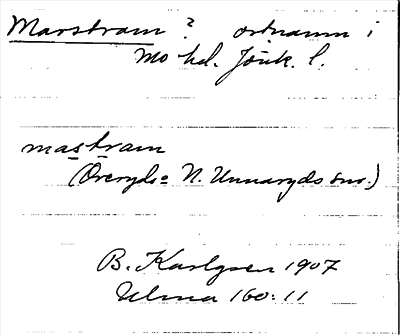 Marstram? ortnamn i
Mo hd. Jönk. l.
mastram
(Öreryds o N. Unnaryds snr.)
B. Karlgren 1907
Ulma 160:11